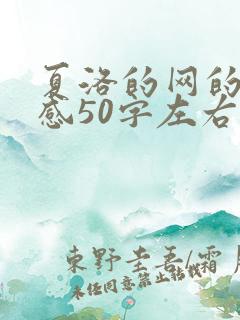 夏洛的网的
感50字左右
東野圭吾/霜月
未任同意禁止转载